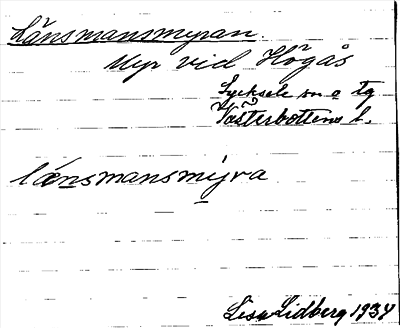 Länsmansmyran.
Myr vid Högås
Lycksele sn o tg
Västerbottens l.
länsmansmýra
Lisa Lidberg 1934